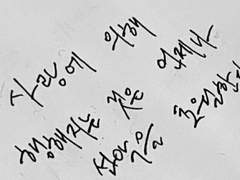 사랑에 의해
행해지는 것은 언제나
선악을 초월한